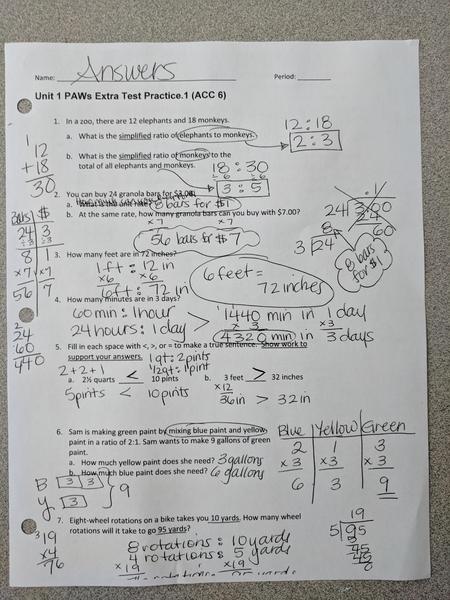 Name: Answers Period:
Unit 1 PAWs Extra Test Practice.1 (ACC 6)
1. In a zoo, there are 12 elephants and 18 monkeys.
12:18
a. What is the simplified ratio of elephants to monkeys.
2:3
b. What is the simplified ratio of monkeys to the
total of all elephants and monkeys.
18:30
÷6 ÷6
3:5
1
12
+18
30
2. You can buy 24 granola bars for $3.00.
a. What is the unit rate? 8 bars for $1
b. At the same rate, how many granola bars can you buy with $7.00?
x7 x7
56 bars for $7
Bars $
24 3
÷3 ÷3
8 1
x7 x7
56 7
8
3 24
8 bars for $1
3. How many feet are in 72 inches?
1ft: 12 in
x6 x6
6ft: 72 in
6 feet =
72 inches
4. How many minutes are in 3 days?
60 min: 1hour
24 hours: 1 day
>
1440 min in 1 day
x 3 x3
4320 min in 3 days
2
24
60
1440
5. Fill in each space with <, >, or = to make a true sentence. Show work to
support your answers.
1qt: 2 pints
1/2qt: 1 pint
2+2+1
a. 2½ quarts < 10 pints b. 3 feet > 32 inches
5pints < 10 pints
x12
36in > 32 in
6. Sam is making green paint by mixing blue paint and yellow
paint in a ratio of 2:1. Sam wants to make 9 gallons of green
paint.
a. How much yellow paint does she need? 3 gallons
b. How much blue paint does she need? 6 gallons
B 3 3
Y 3
} 9
Blue Yellow Green
2 1 3
x3 x3 x3
6 3 9
7. Eight-wheel rotations on a bike takes you 10 yards. How many wheel
rotations will it take to go 95 yards?
8 rotations: 10 yards
4 rotations: 5 yards
x19 x19
3
19
x4
76
19
5 95
5
45
45
0